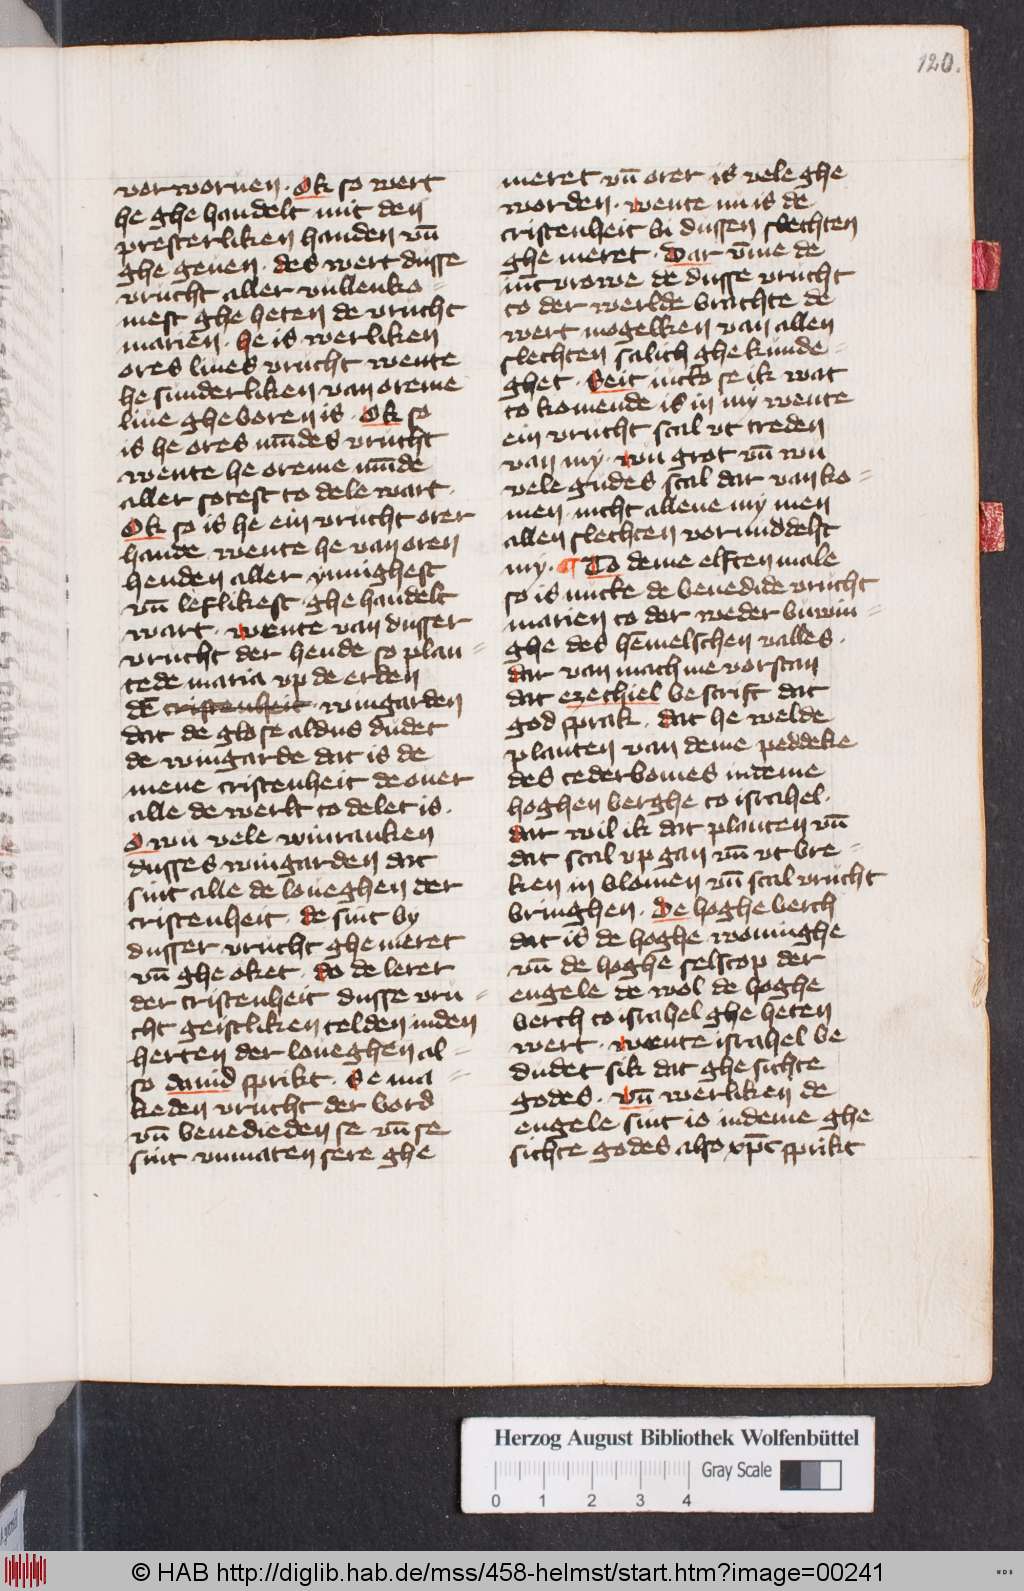 120.
vorworuen. Ok so wert
he ghe handelt mit den
presterliken handen vn̄
ghe geuen. des wert dusse
vrucht aller vullenko=
mest ghe heten de vrucht
marien. he is werliken
ores liues vrucht wente
he sunderliken van oreme
liue gheboren is. Ok so
is he ores mūdes vrucht
wente he oreme mūde
aller sotest to dele wart.
Ok so is he ein vrucht orer
hande wente he van oren
henden aller ynnighest
vn̄ leflikest ghe handelt
wart. wente van dusser
vrucht der hende so plan=
tede maria vp de erden
dē cristenheit. wingarden
dat de glose aldus dudet
de wingarde dat is de
mene cristenheit de ouer
alle de werlt to delet is.
O wu vele winranken
dusses wingarden dat
sint alle de loueghen der
cristenheit. de sint by
dusser vrucht ghe meret
vn̄ ghe oket. do de lerer
der cristenheit dusse vru=
cht geistliken telden in den
herten der loueghen al=
so dauid sprikt. Se ma=
keden vrucht der bord
vn̄ benedieden se vn̄ se
sint vnmaten sere ghe
meret vn̄ orer is vele ghe
worden. wente nu is de
cristenheit bi dussen slechten
ghe meret. Dar vm̄e de
iūcvrowe de dusse vrucht
to der werlde brachte de
wert mogelken van allen
slechten salich ghe kunde=
ghet. Seit nicko se ik wat
to komende is in my wente
ein vrucht scal vt treden
van my. wu grot vn̄ wu
vele gudes scal dar van ko=
men. nicht allene my men
allen slechten vormiddelst
my. ¶ To deme elften male
so is nutte de benedide vrucht
marien to der weder buwin=
ghe des hēmelschen valles.
dar van mach me vorstan
dat ezechiel bescrift dat
god sprak. dat he welde
planten van deme peddeke
des cederbomes in deme
hoghen berghe to israhel.
dat wil ik dat planten vn̄
dat scal vp gan vn̄ vt bre=
ken in blomen vn̄ scal vrucht
bringhen. De hoghe berch
dat is de hoghe woninghe
vn̄ de hoghe selscop der
engele de wol de hoghe
berch to israhel ghe heten
wert. wente israhel be
dudet sik dat ghe sichte
godes. vn̄ werliken de
engele sint io in deme ghe
sichte godes also xp̄c sprikt
Herzog August Bibliothek Wolfenbüttel
Gray Scale
0 1 2 3 4
© HAB http://diglib.hab.de/mss/458-helmst/start.htm?image=00241